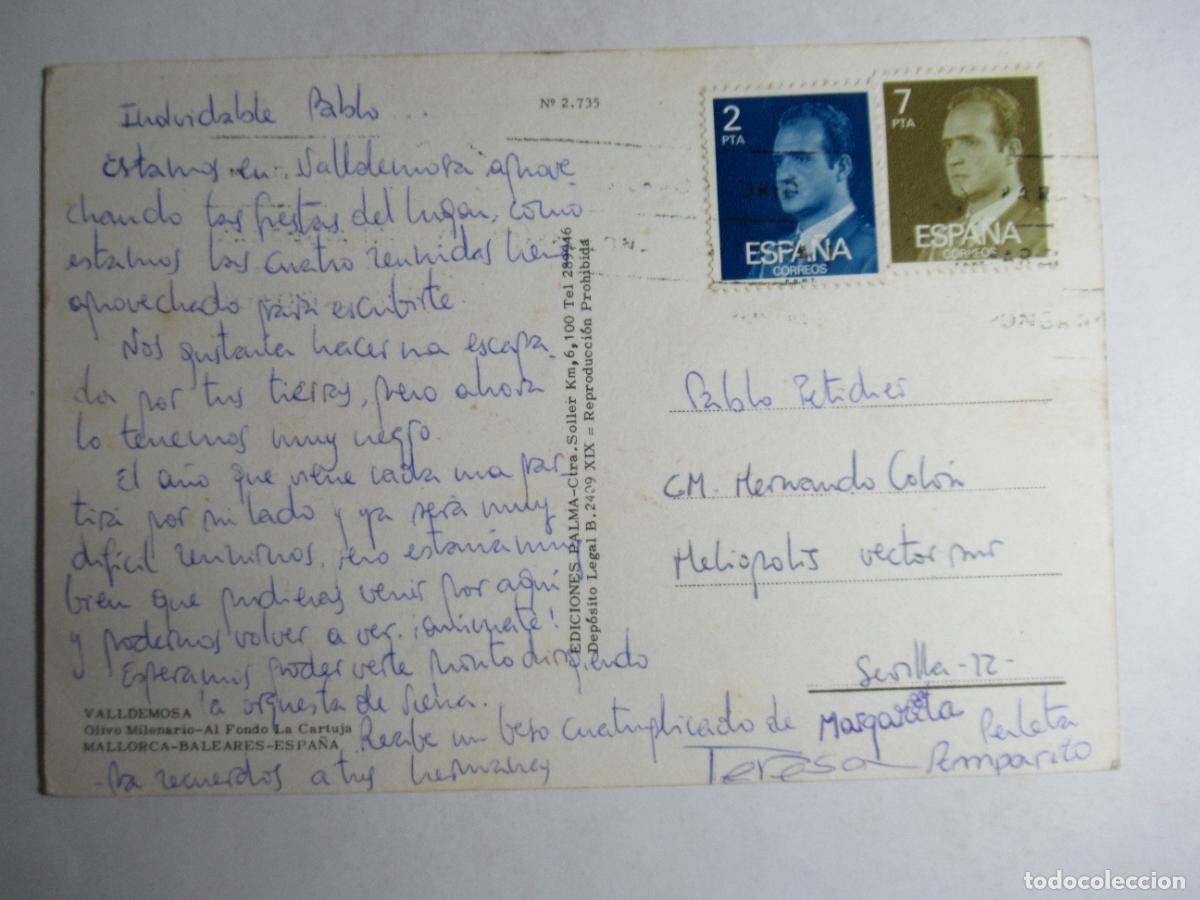 Inolvidable Pablo...
Estamos en Valldemosa aprove-
chando las fiestas del lugar, como
estamos las cuatro reunidas hemos
aprovechado para escribirte.
Nos gustaría hacer una escapa-
da por tus tierras, pero ahora
lo tenemos muy negro.
El año que viene cada una par-
tirá por su lado y ya será muy
difícil reunirnos, pero estaría muy
bien que pudieras venir por aquí
y podernos volver a ver. ¡anímate!
Esperamos poder verte pronto dirigiendo
la orquesta de Viena.
Recibe un beso cuatriplicado de Margarita
Perleta
Teresa Amparito
Da recuerdos a tus hermanos
VALLDEMOSA
Olivo Milenario-Al Fondo La Cartuja
MALLORCA-BALEARES-ESPAÑA
Nº 2.735
EDICIONES PALMA-Ctra.Soller Km,6,100 Tel 289946
Depósito Legal B.2409 XIX = Reproducción Prohibida
2
PTA
ESPAÑA
CORREOS
7
PTA
ESPAÑA
CORREOS
Pablo
C.M. Hernando Colón
Heliópolis sector sur
Sevilla-12-
todocoleccion